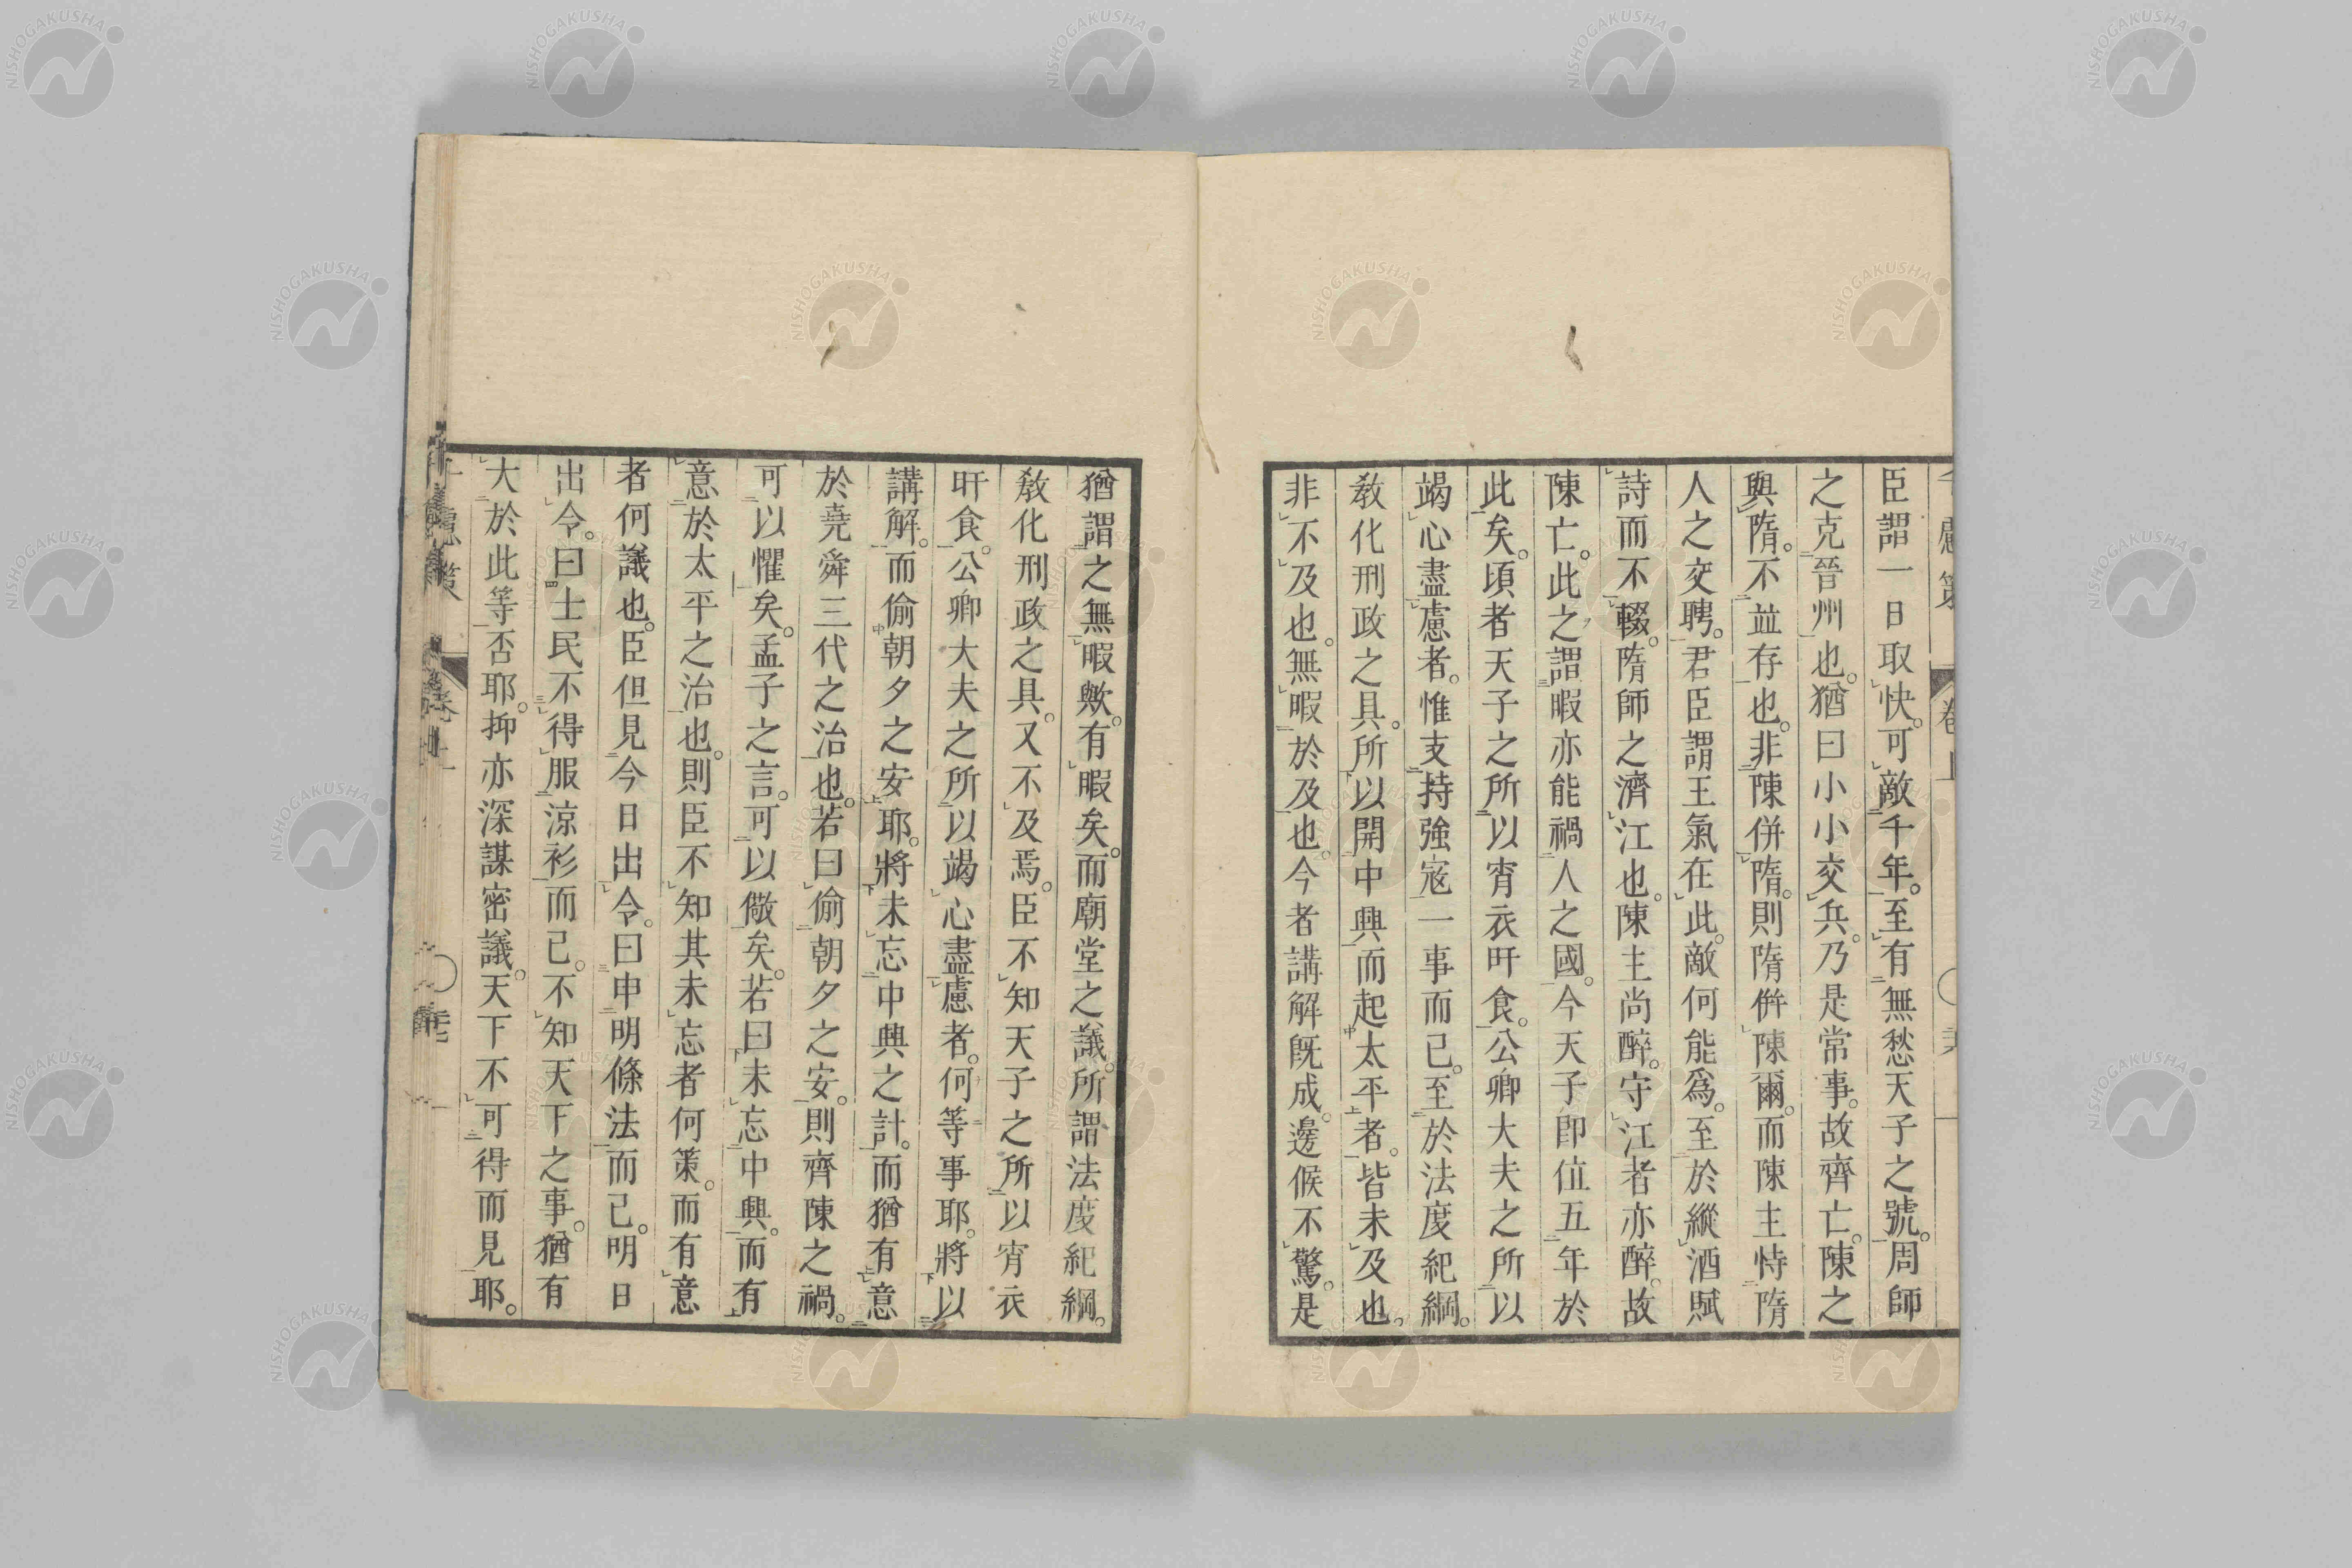 臣謂一日取快。可敵千年。至有無愁天子之號。周師
之克晉州也。猶曰小小交兵。乃是常事。故齊亡。陳之
與隋。不並存也。非陳併隋。則隋併陳爾。而陳主恃隋
人之交聘。君臣謂王氣在此。敵何能爲。至於縱酒賦
詩而不輟。隋師之濟江也。陳主尚醉。守江者亦醉。故
陳亡。此之謂暇亦能禍人之國。今天子即位五年於
此矣。頃者天子之所以宵衣旰食。公卿大夫之所以
竭心盡慮者。惟支持強寇一事而已。至於法度紀綱。
教化刑政之具。所以開中興而起太平者。皆未及也。
非不及也。無暇於及也。今者講解既成。邊候不驚。是
猶謂之無暇歟。有暇矣。而廟堂之議。所謂法度紀綱。
教化刑政之具。又不及焉。臣不知天子之所以宵衣
旰食。公卿大夫之所以竭心盡慮者。何等事耶。將以
講解。而偷朝夕之安耶。將未忘中興之計。而猶有意
於堯舜三代之治也。若曰偷朝夕之安。則齊陳之禍。
可以懼矣。孟子之言。可以儆矣。若曰未忘中興。而有
意於太平之治也。則臣不知其未忘者何策。而有意
者何議也。臣但見今日出令。曰申明條法而已。明日
出令。曰士民不得服涼衫而已。不知天下之事。猶有
大於此等否耶。抑亦深謀密議。天下不可得而見耶。